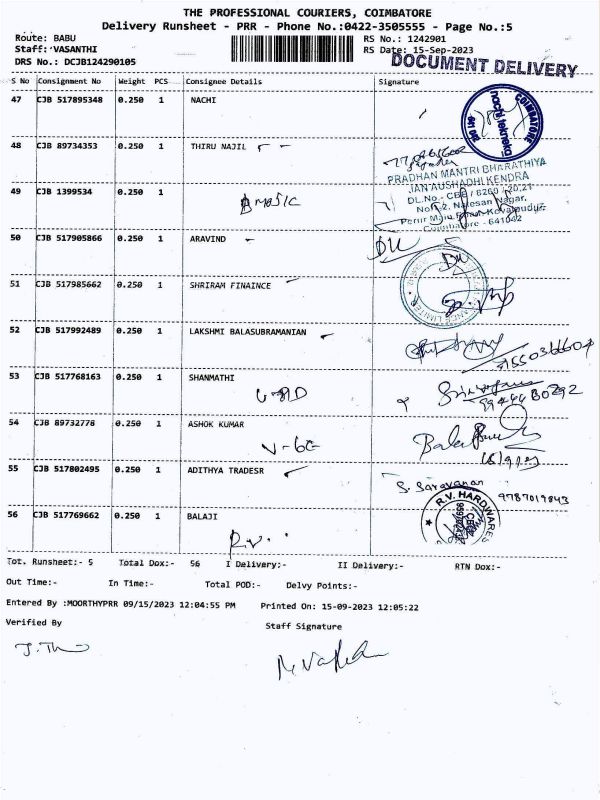 THE PROFESSIONAL COURIERS, COIMBATORE
Delivery Runsheet - PRR - Phone No.:0422-3505555 - Page No.:5
Route: BABU
RS No.: 1242901
Staff: VASANTHI
RS Date: 15-Sep-2023
DRS No.: DCJB124290105
DOCUMENT DELIVERY
S No Consignment No Weight PCS Consignee Details Signature
47 CJB 517895348 0.250 1 NACHI
COIMBATORE
nachi tekneka
641 001
48 CJB 89734353 0.250 1 THIRU NAJIL
PRADHAN MANTRI BHARATHIYA
JAN AUSHADHI KENDRA
49 CJB 1399534 0.250 1
DL.No - CBE / 6260 / 20,21
Nalesan Nagar,
Coimbatore - 641042
50 CJB 517905866 0.250 1 ARAVIND
51 CJB 517985662 0.250 1 SHRIRAM FINAINCE
52 CJB 517992489 0.250 1 LAKSHMI BALASUBRAMANIAN
53 CJB 517768163 0.250 1 SHANMATHI
54 CJB 89732778 0.250 1 ASHOK KUMAR
55 CJB 517802495 0.250 1 ADITHYA TRADESR
S. Saravanan
9787019843
R.V. HARDWARES
56 CJB 517769662 0.250 1 BALAJI
R.V.
Tot. Runsheet:- 5 Total Dox:- 56 I Delivery:- II Delivery:- RTN Dox:-
Out Time:- In Time:- Total POD:- Delvy Points:-
Entered By :MOORTHYPRR 09/15/2023 12:04:55 PM Printed On: 15-09-2023 12:05:22
Verified By
Staff Signature